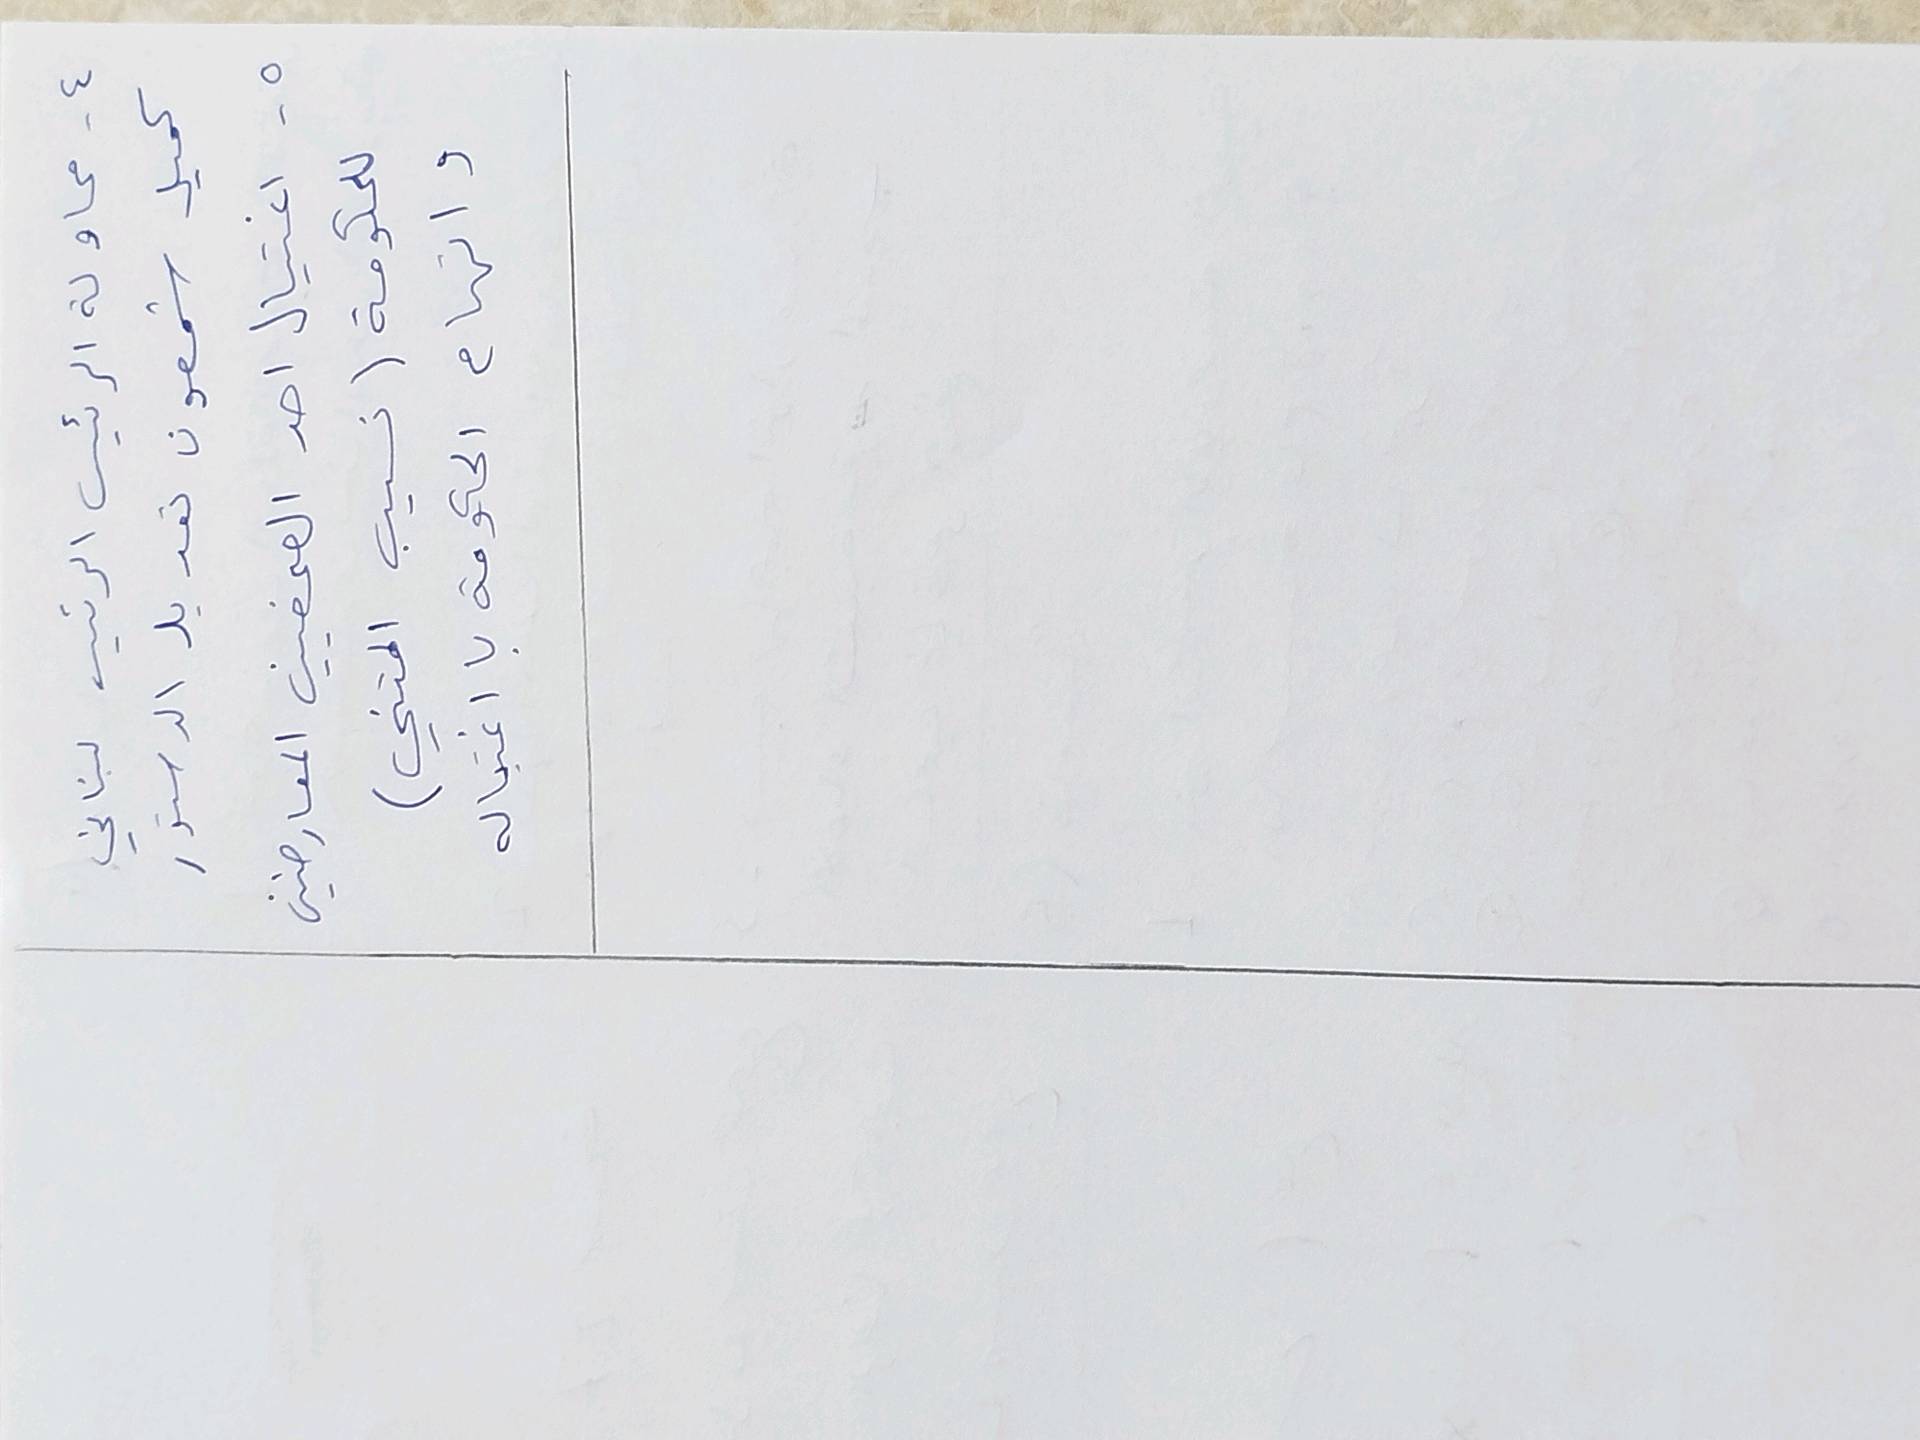 ٤- محاولة الرئيس الرئيس لبناني
كميل شمعون تعديل الدستور
٥- اغتيال احد الصحفيين المعارضين
للحكومة (نسيب المتني)
واتهام الحكومة باغتياله